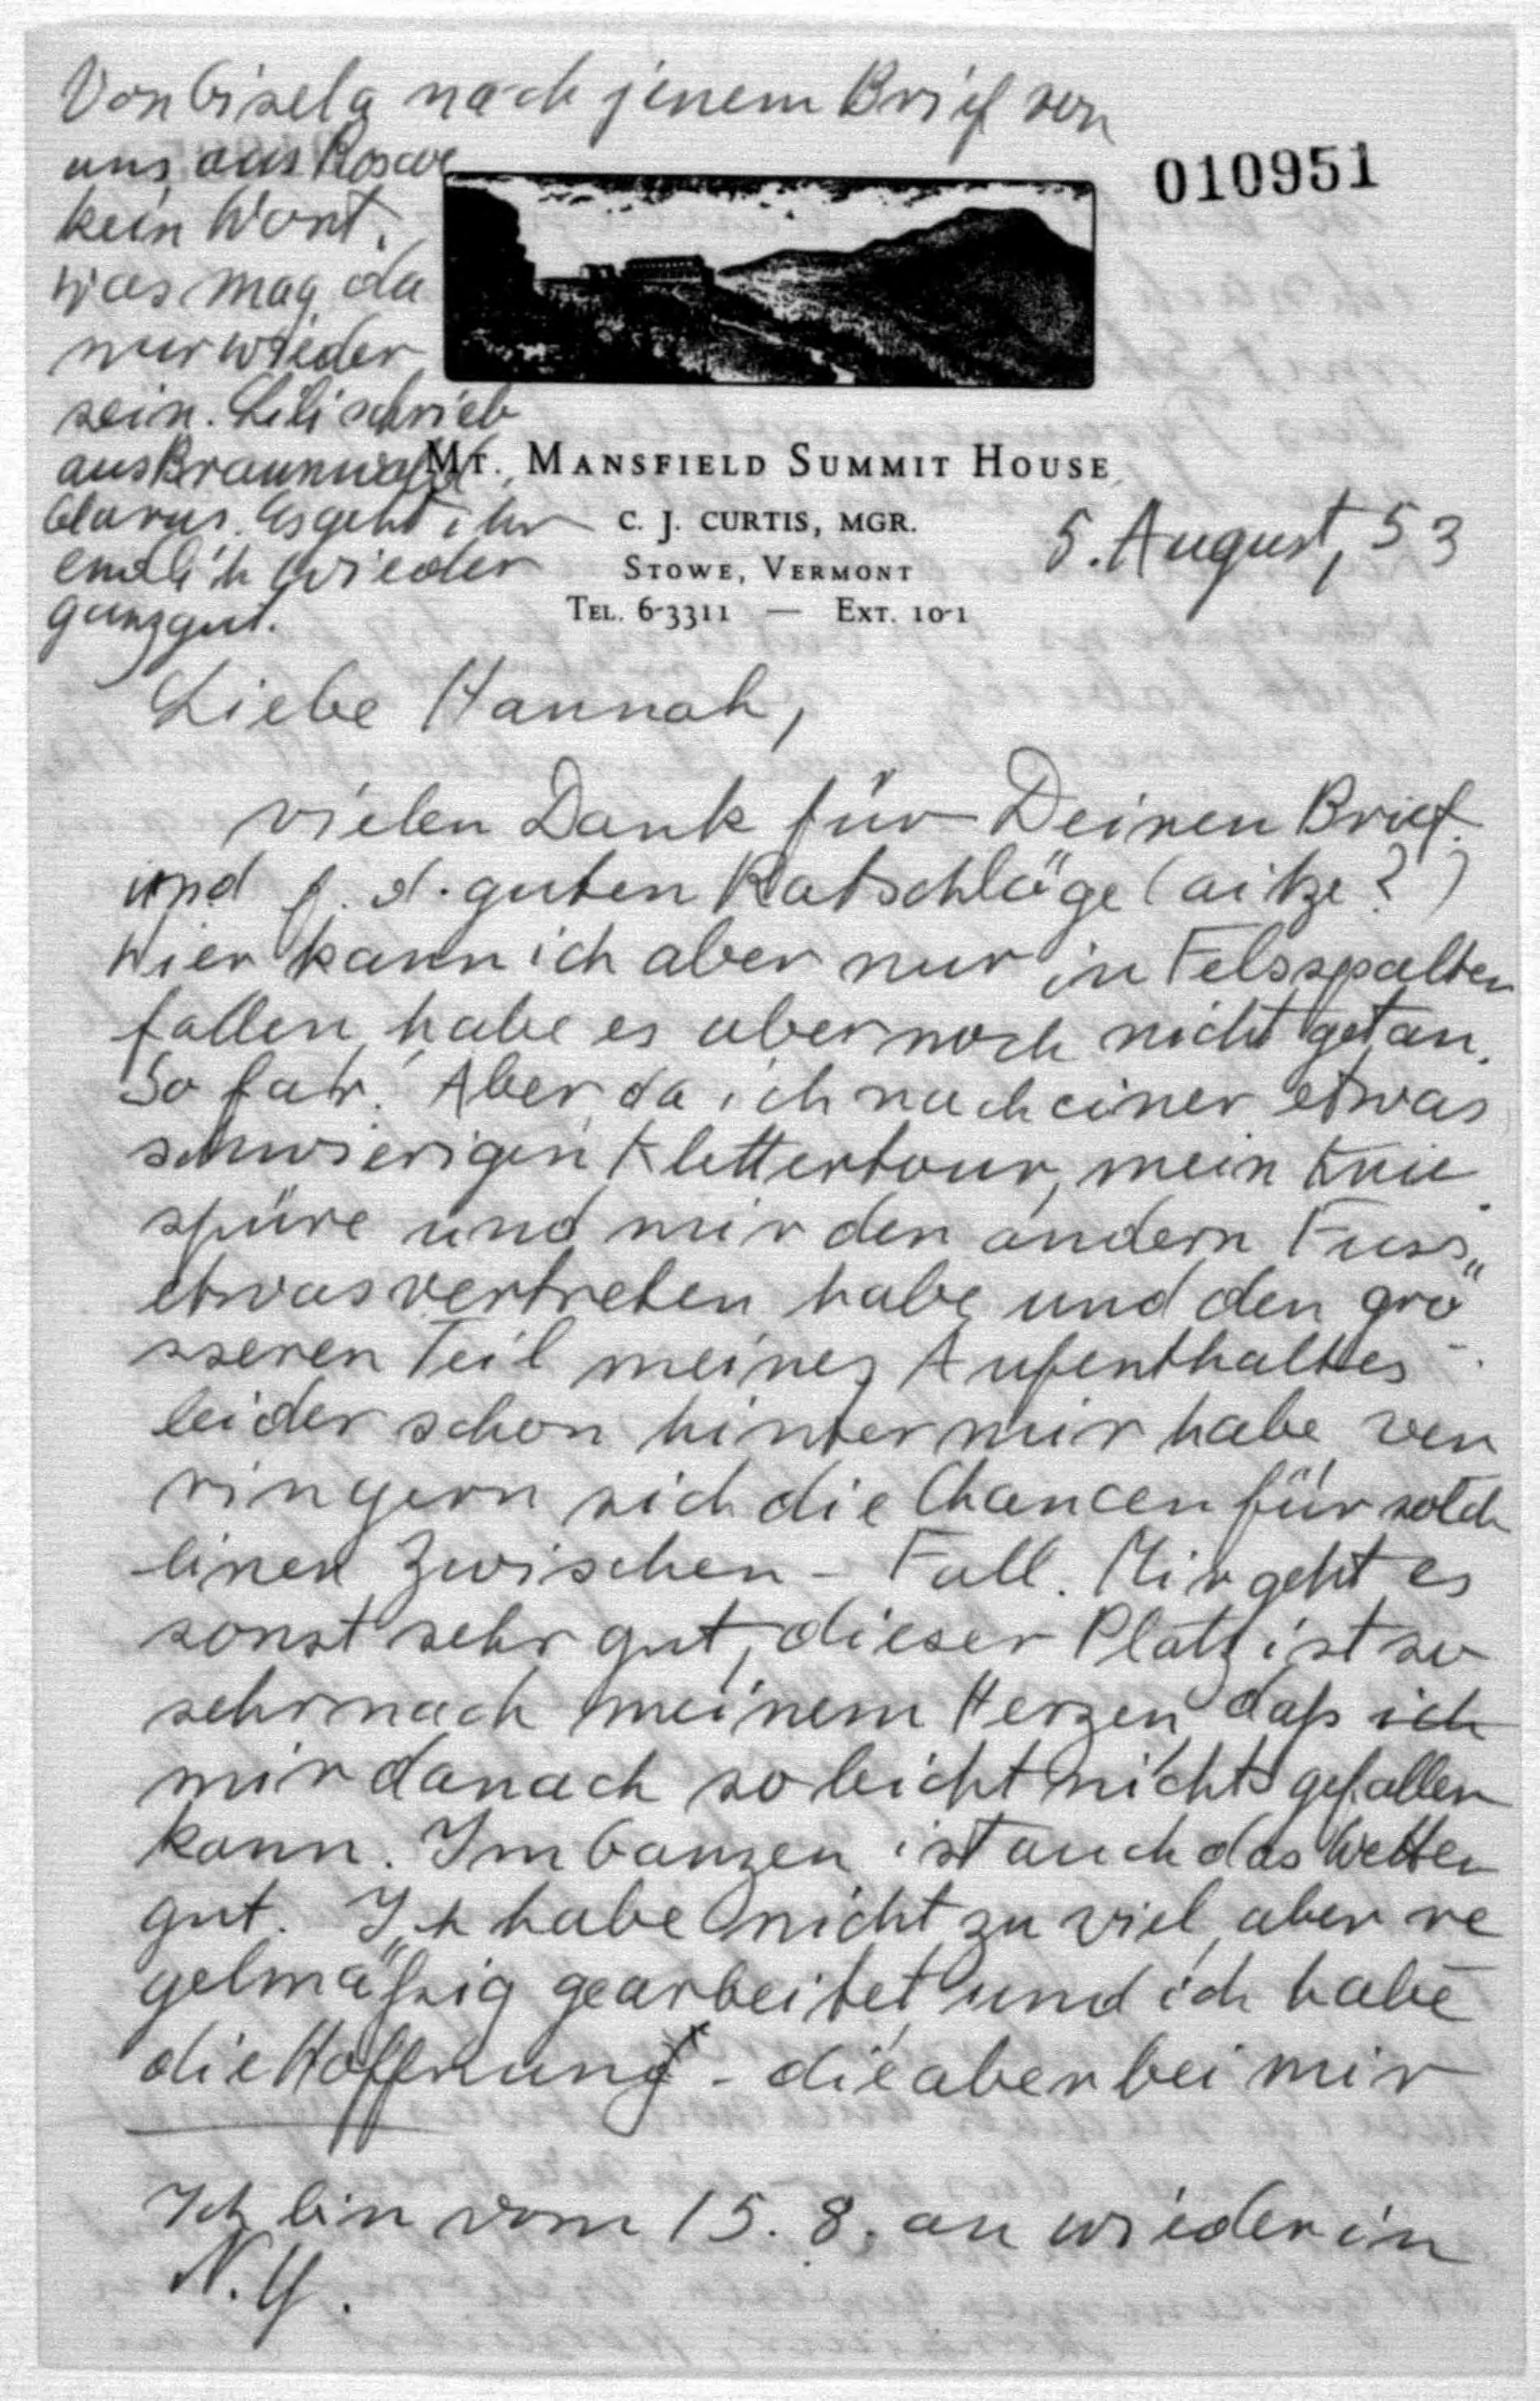 Von Gisela nach jenem Brief von
uns aus Roscoe
kein Wort.
was mag da
nur wieder
sein. Lili schrieb
aus Braunwald
Glarus. Es geht ihr
endlich wieder
ganz gut.
010951
MT. MANSFIELD SUMMIT HOUSE
C. J. CURTIS, MGR.
STOWE, VERMONT
TEL. 6-3311 — EXT. 10-1
5. August, 53
Liebe Hannah,
vielen Dank für Deinen Brief
und f. d. guten Ratschläge (aitze?)
hier kann ich aber nur in Felsspalten
fallen, habe es aber noch nicht getan.
So far. Aber da ich nach einer etwas
schwierigen Klettertour, mein Knie
spüre und mir den andern Fuss
etwas vertreten habe und den grö
sseren Teil meines Aufenthaltes
leider schon hinter mir habe ver
ringern sich die Chancen für solch
einen Zwischen - Fall. Mir geht es
sonst sehr gut, dieser Platz ist so
sehr nach meinem Herzen daß ich
mir danach so leicht nichts gefallen
kann. Im Ganzen ist auch das Wetter
gut. Ich habe nicht zu viel, aber re
gelmäßig gearbeitet und ich habe
die Hoffnung - die aber bei mir
Ich bin vom 15. 8. an wieder in
N.Y.